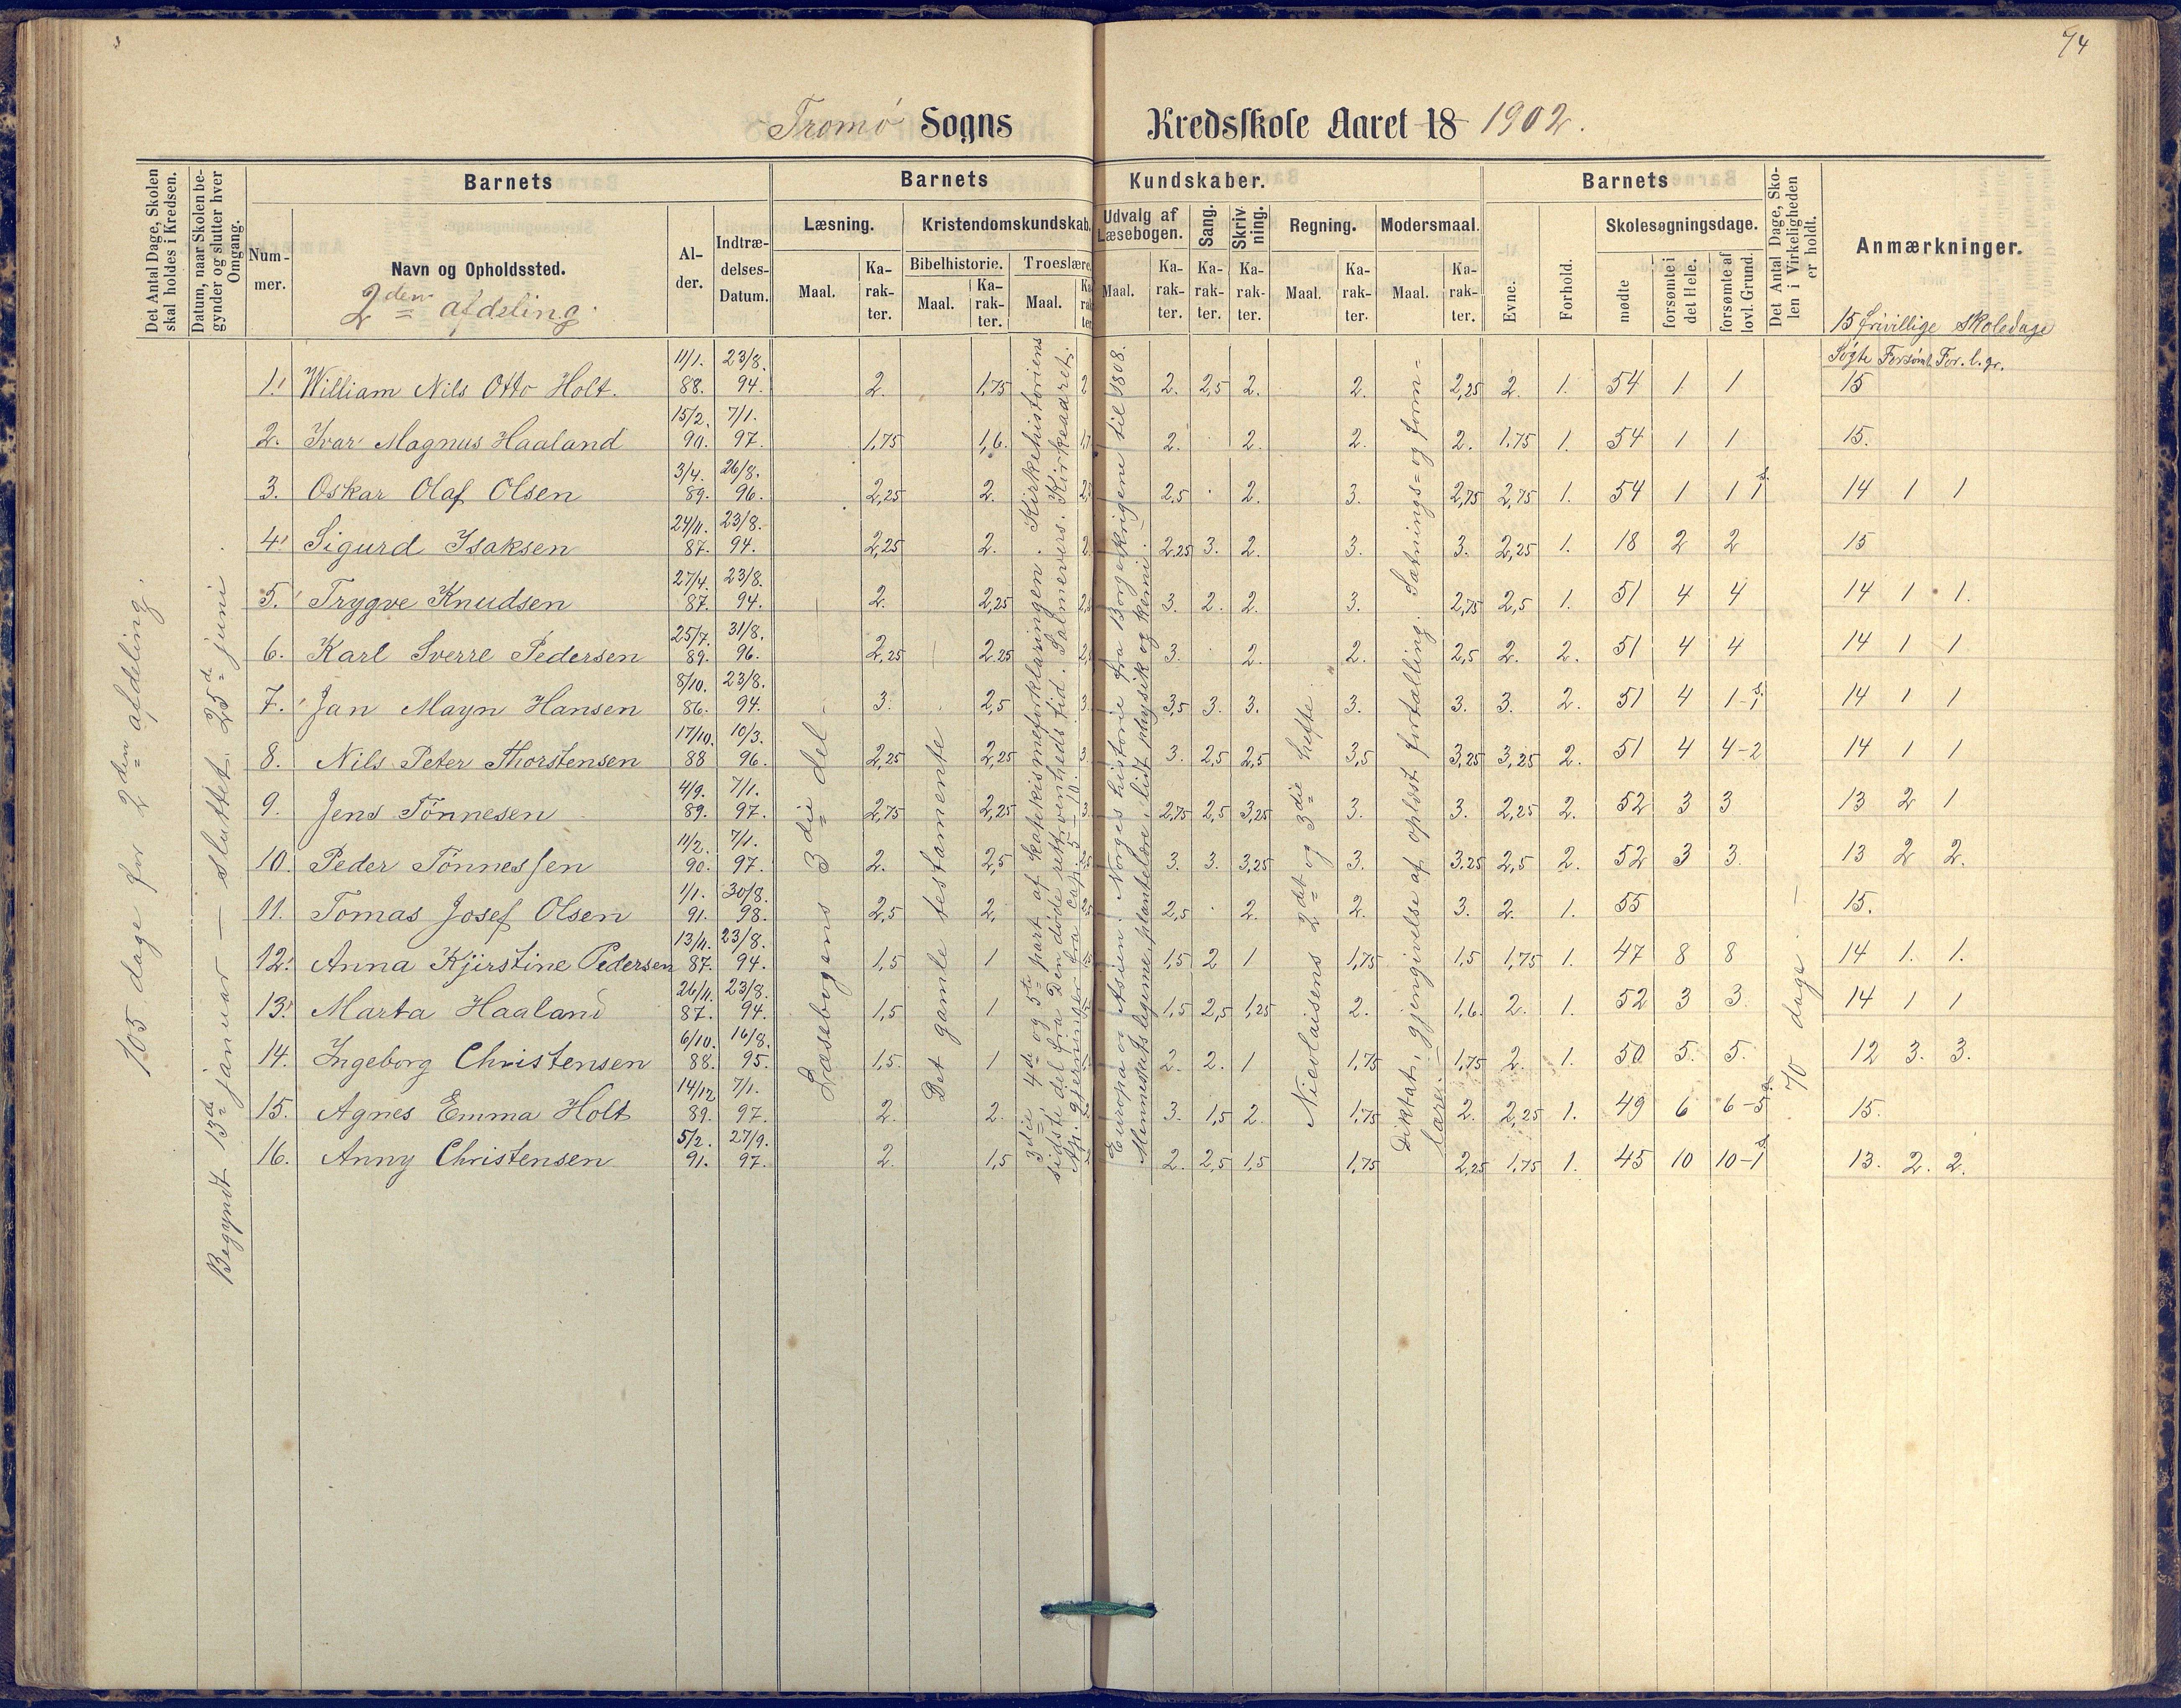 74
Tromø Sogns Kredsskole Aaret 18 1902.
Det Antal Dage, Skolen skal holdes i Kredsen.
Datum, naar Skolen begynder og slutter hver Omgang.
Barnets
Nummer.
Navn og Opholdssted.
2den afdeling.
Alder.
Indtrædelses-Datum.
Barnets Kundskaber.
Læsning.
Maal.
Karakter.
Kristendomskundskab.
Bibelhistorie.
Maal.
Karakter.
Troeslære.
Maal.
Karakter
Udvalg af Læsebogen.
Maal.
Karakter.
Sang.
Karakter.
Skrivning.
Karakter.
Regning.
Maal.
Karakter.
Modersmaal.
Maal.
Karakter.
Barnets
Evne.
Forhold.
Skolesøgningsdage.
mødte
forsømte i det Hele.
forsømte af lovl. Grund.
Det Antal Dage, Skolen i Virkeligheden er holdt.
Anmærkninger.
15 frivillige skoledage
Søgte Forsømt For. l. gr.
105 dage for 2den afdeling.
Begyndt 13de januar — sluttet 25de juni
Læsebogens 3die del
Det gamle testamente
3die 4de og 5te part af katekismeforklaringen. Kirkehistoriens
sidste del fra Den døde rettroenheds tid. Salmevers. Kirkeaaret.
Ap. gjerninger fra Cap. 5 – 10.
Europa og Asien. Norges historie fra Borgerkrigene til 1808.
Menneskets legeme, plantelære, lidt physik og kemi.
Nicolaisens 2det og 3die hefte.
Diktat, gjengivelse af oplæst fortælling. Sætnings= og form=
lære.
70 dage
1. William Nils Otto Holt. 11/1. 88. 23/8. 94. 2. 1,75 2 2. 2,5 2. 2. 2,25 2. 1. 54 1 1 15
2. Ivar Magnus Haaland 15/2. 90. 7/1. 97. 1,75 1,6. 2. 2. 2. 2. 1.75 1. 54 1 1 15.
3. Oskar Olaf Olsen 3/4. 89. 26/8. 96. 2,25 2. 2,5 2. 3. 2,75 2,75 1. 54 1 1 14 1 1
4. Sigurd Isaksen 24/11. 87. 23/8. 94. 2,25 2. 2. 2.25 3. 2. 3. 3. 2,25 1. 18 2 2 15
5. Trygve Knudsen 27/4. 87. 23/8. 94. 2. 2,25 3. 2. 2. 3. 2,75 2,5 1. 51 4 4 14 1 1.
6. Karl Sverre Pedersen 25/7. 89. 31/8. 96. 2,25 2.25 3. 2. 2. 2,5 2. 2. 51 4 4 14 1 1
7. Jan Mayn Hansen 8/10. 86. 23/8. 94. 3. 2,5 3. 3,5 3. 3. 3. 3. 3. 2. 51 4 14 1 1
8. Nils Peter Thorstensen 17/10. 88 10/3. 96. 2,25 2,25 3. 3. 2,5 2,5 3,5 3,25 3,25 2. 51 4 4-2 14 1 1
9. Jens Tønnesen 4/9. 89. 7/1. 97. 2,75 2,25 3. 2,75 2,5 3,25 3. 3. 2,25 2. 52 3 3 13 2 1
10. Peder Tønnessen 11/2. 90. 7/1. 97. 2. 2,5 3. 3. 3,25 3. 3.25 2,5 2. 52 3 3. 13 2 2.
11. Tomas Josef Olsen 1/1. 91. 30/8. 98. 2,5 2. 2,5 2. 2. 3. 2. 1. 55 15.
12. Anna Kjirstine Pedersen 13/11. 87. 23/8. 94. 1,5 1 1,5 2 1 1,75 1,5 1,75 1. 47 8 8 14 1. 1.
13. Marta Haaland 26/11. 87. 23/8. 94. 1,5 1 1,5 2,5 1,25 2. 1,6. 2. 1. 52 3 3. 14 1 1
14. Ingeborg Christensen 6/10. 88. 16/8. 95. 1,5. 1 2. 2. 1 1,75 1,75 2. 1. 50 5. 5. 12 3. 3.
15. Agnes Emma Holt 14/12 89. 7/1. 97. 2. 2. 3. 1,5 2. 1,75 2. 2,25 1. 49 6 6-5 15.
16. Anny Christensen 5/2. 91. 27/9. 97. 2. 1,5 2. 2,5 1,5 1,75 2,25 1,75 1. 45 10 10-1 13. 2. 2.